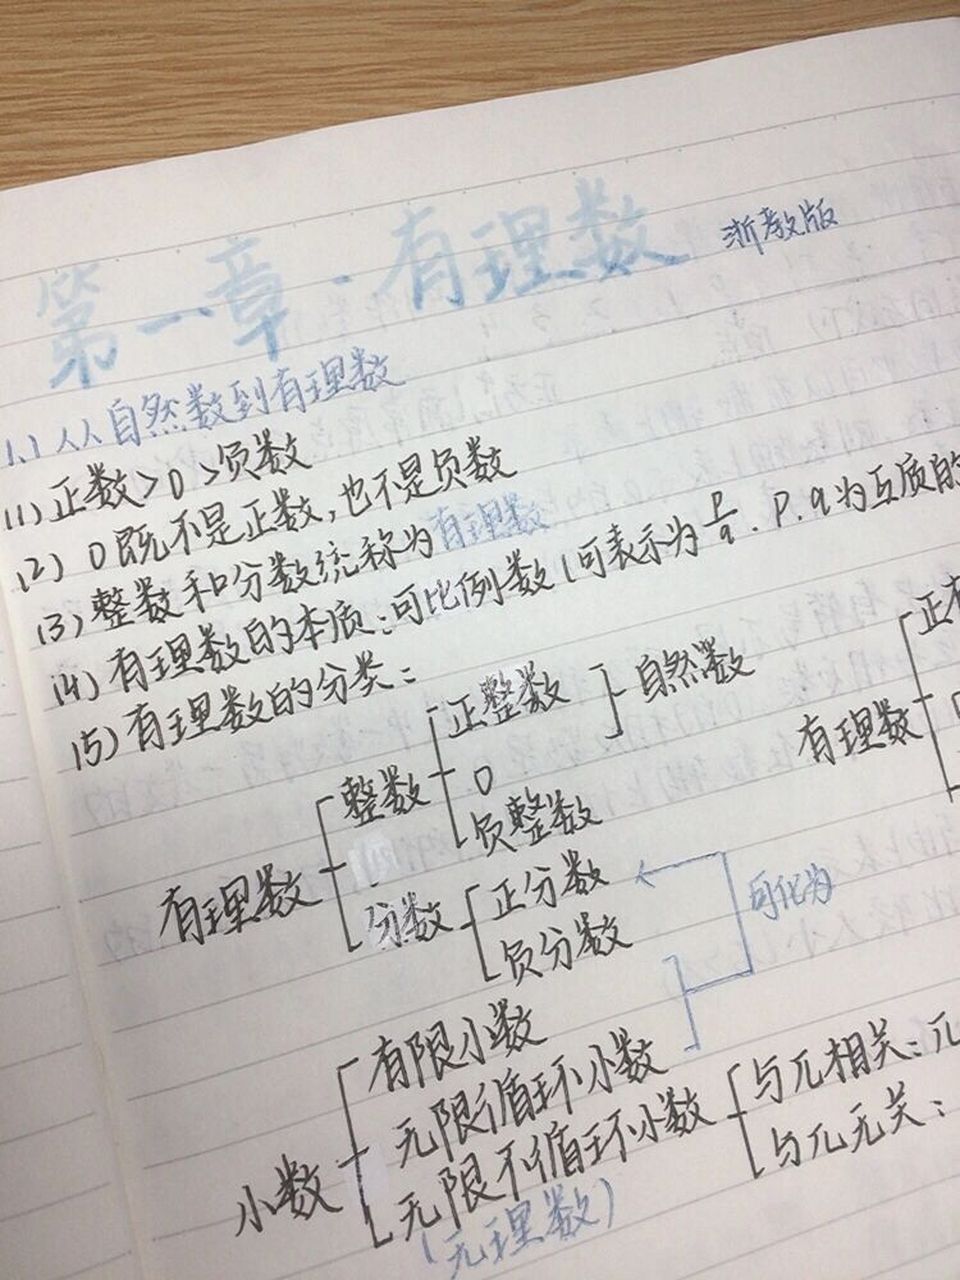 第一章·有理数 浙教版
1.1 从自然数到有理数
(1) 正数>0>负数
(2) 0既不是正数,也不是负数
(3) 整数和分数统称为有理数
(4) 有理数的本质:可比例数(可表示为p/q.P.q为互质的
(5) 有理数的分类:
有理数
整数
正整数
0
负整数
自然数
分数
正分数
负分数
可化为
有理数
正有
小数
有限小数
无限循环小数
无限不循环小数
(无理数)
与兀相关:兀
与兀无关: